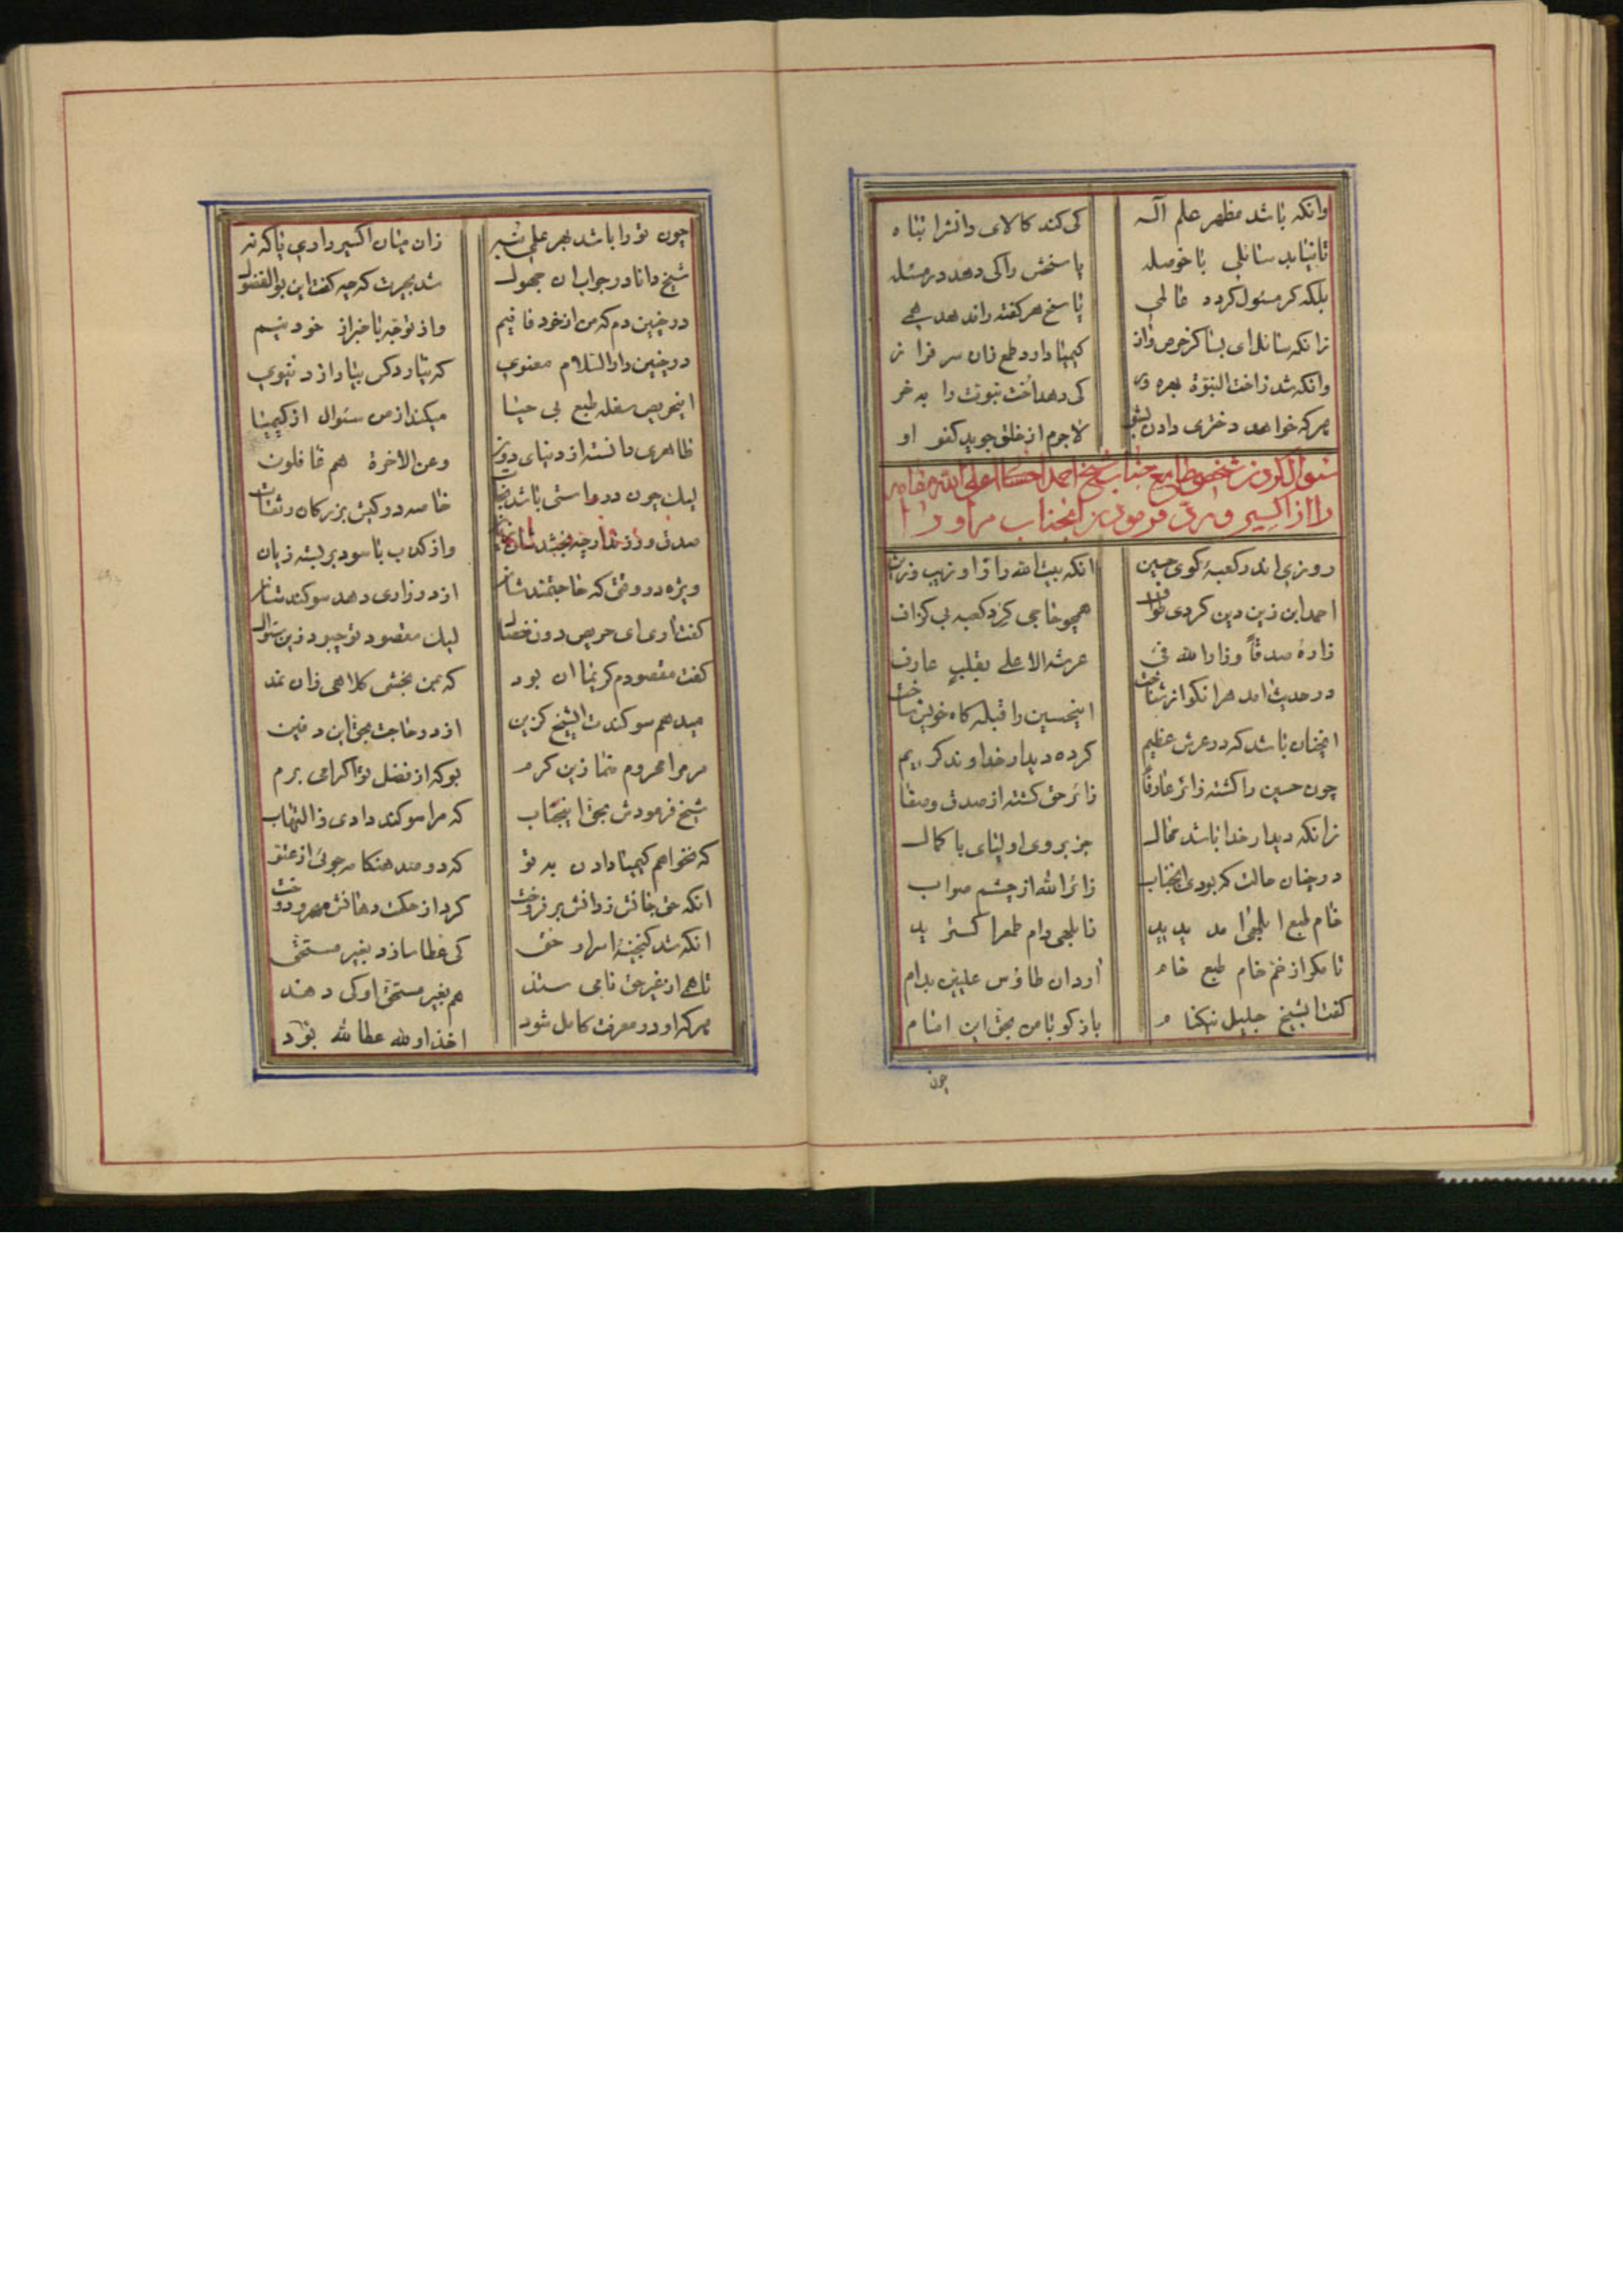 وانکه باشد مظهر علم اله کی کند کالای دانش را تباه
تا نیابد سائلی با حوصله پاسخش را کی دهد در مسئله
بلکه کر مسئول کردد عالمی پاسخ هر کفته را ندهد همی
زانکه سائل ای بسا کز حرص و از کیمیا دارد طمع زان سر فراز
وانکه شد ز اخت النبوة بهره ور کی دهد اخت نبوت را به خر
هرکه خواهد دختری دادن لاجرم از خلق جوید کفو او
سئوال کردن شخص طامع جناب شیخ احمد احسائی اعلی الله مقامه
را از اکسیر و رد فرمودن انجناب مر او را
روزی اندر کعبهٔ کوی حسین انکه بیت الله را زو زیب و زین
احمد ابن زین دین کردی طواف همچو حاجی کرد کعبه بی کزاف
زارهٔ صدقاً وزار الله فی عرشه الاعلی بقلب عارف
در حدیث امد هرانکو از شناخت اینحسین را قبله کاه خویش ساخت
انچنان باشد که در عرش عظیم کرده دیدار خداوند کریم
چون حسین را کشته زائر عارفا زائر حق کشته از صدق و صفا
زانکه دیدار خدا باشد محال جز بروی اولیای با کمال
در چنان حالت که بودی انجناب زائر الله از چشم صواب
خام طبع ابلهی امد پدید تا بلهی دام طمع را کسترید
تا مکر از خم خام طبع خام اردان طاؤس علیین بدام
کفت با شیخ جلیل نیکنام باز کو با من بحق این امام
چون
چون تو را باشد بهر علمی شبر زان میان اکسیر داری یا که نه
شیخ دانا در جواب ان جهول شد بحیرت که چه کفت این بوالفضول
در چنین دم که من از خود فانیم واز توجه باخبر از خود نیم
در چنین دار السلام معنوی که نیارد کس بیاد از دنیوی
اینحریص سفله طبع بی حیا میکند از من سئوال از کیمیا
ظاهری دانسته از دنیای دون وعن الاخرة هم غافلون
لیک چون در راستی باشد نجات خاصه در کیش بزرکان و ثقات
صدق ورزند ارچه بخشدشان واز کذب با سود بربسته زبان
ویژه در وقتی که حاجتمندشان از در زاری دهد سوکندشان
کفت اری ای حریص دون خصال لیک مقصود تو چبود زین سئوال
کفت مقصودم کریما ان بود که بمن بخشی کلاهی زان نمد
میدهم سوکندت ای شیخ کزین از در حاجت بحق این دفین
مر مرا محروم منما زین کرم بو که از فضل تو اکرامی برم
شیخ فرمودش بحق اینجناب که مرا سوکند دادی ز التهاب
که نخواهم کیمیا دادن به تو که دو صد هنکامه جوئی از عتو
انکه حق جانش ز دانش برفروخت کرد از حکمت دهانش مهر و دوخت
انکه شد کنجینهٔ اسرار حق کی عطا سازد بغیر مستحق
تا همی از غیر حق نامی ستند هم بغیر مستحق او کی دهند
هرکه او در معرفت کامل شود اخذ او لله عطا لله بود